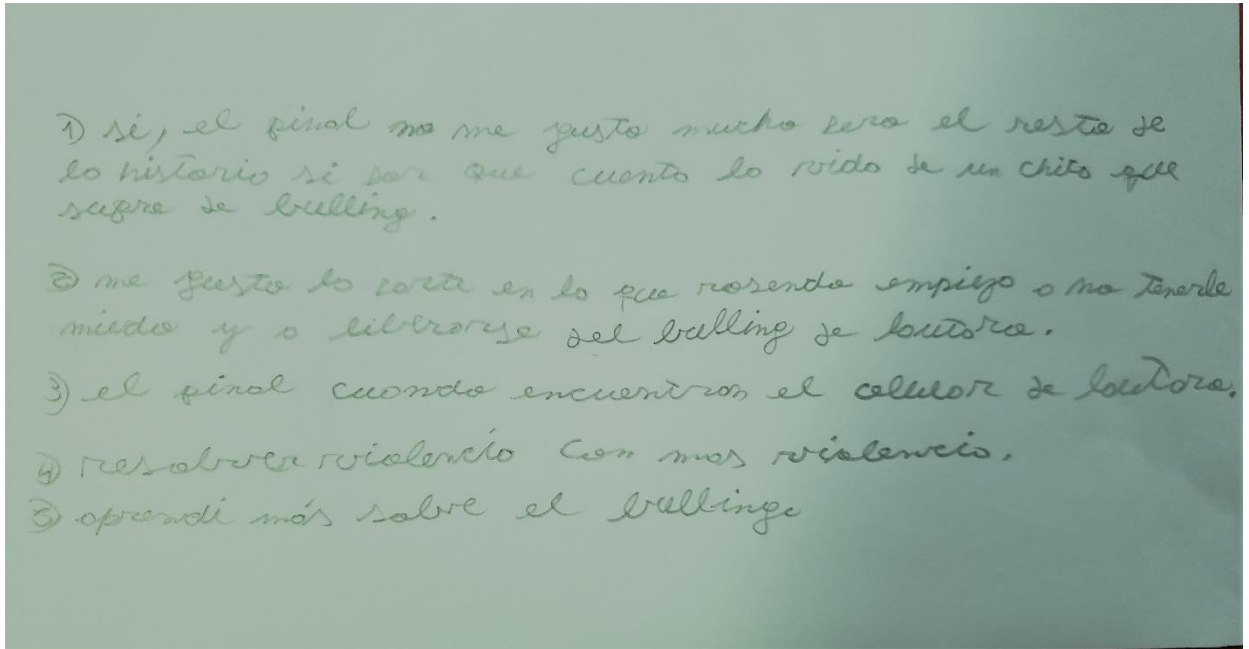 1) si, el final no me gusto mucho pero el resto de
la historia si por que cuenta la vida de un chico que
sufre de bulling.
2) me gusto la parte en la que rosendo empiezo a no tenerle
miedo y a liberarse del bulling de lautora.
3) el final cuando encuentran el celular de lautora.
4) resolver violencia con mas violencia.
5) aprendi más sobre el bulling.